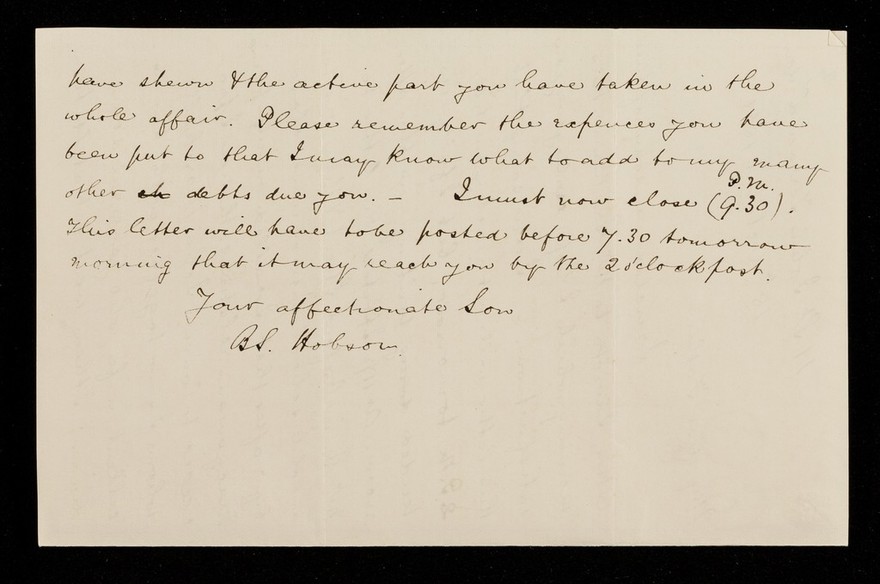 have shewn & the active part you have taken in the
whole affair. Please remember the expences you have
been put to that I may know what to add to my many
P.M.
other debts due you. – I must now close (9.30).
This letter will have to be posted before 7.30 tomorrow
morning that it may reach you by the 2 o'clock post.
Your affectionate Son
B.S. Hobson.